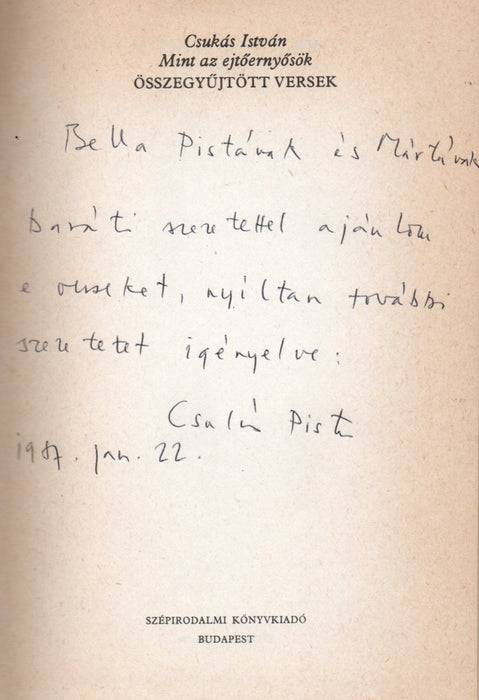 Csukás István
Mint az ejtőernyősök
ÖSSZEGYŰJTÖTT VERSEK
Bella Pistának és Mártának
baráti szeretettel ajánlom
e verseket, nyíltan további
szeretetet igényelve:
Csukás Pista
1987. jan. 22.
SZÉPIRODALMI KÖNYVKIADÓ
BUDAPEST